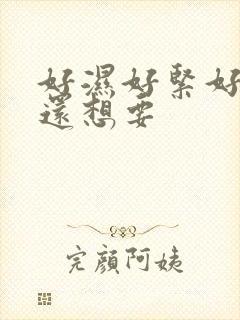 好濕好緊好
還想要
完顏阿姨